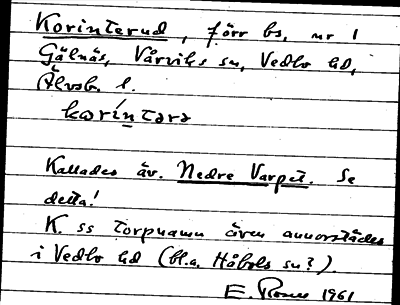 Korinterud, förr bs, nr 1
Gälnäs, Vårviks sn, Vedbo hd,
Älvsb. l.
korintərə
Kallades äv. Nedre Varpet. Se
detta!
K. ss torpnamn även annorstädes
i Vedbo hd (bl.a. Håbols sn?).
E. Rosen 1961